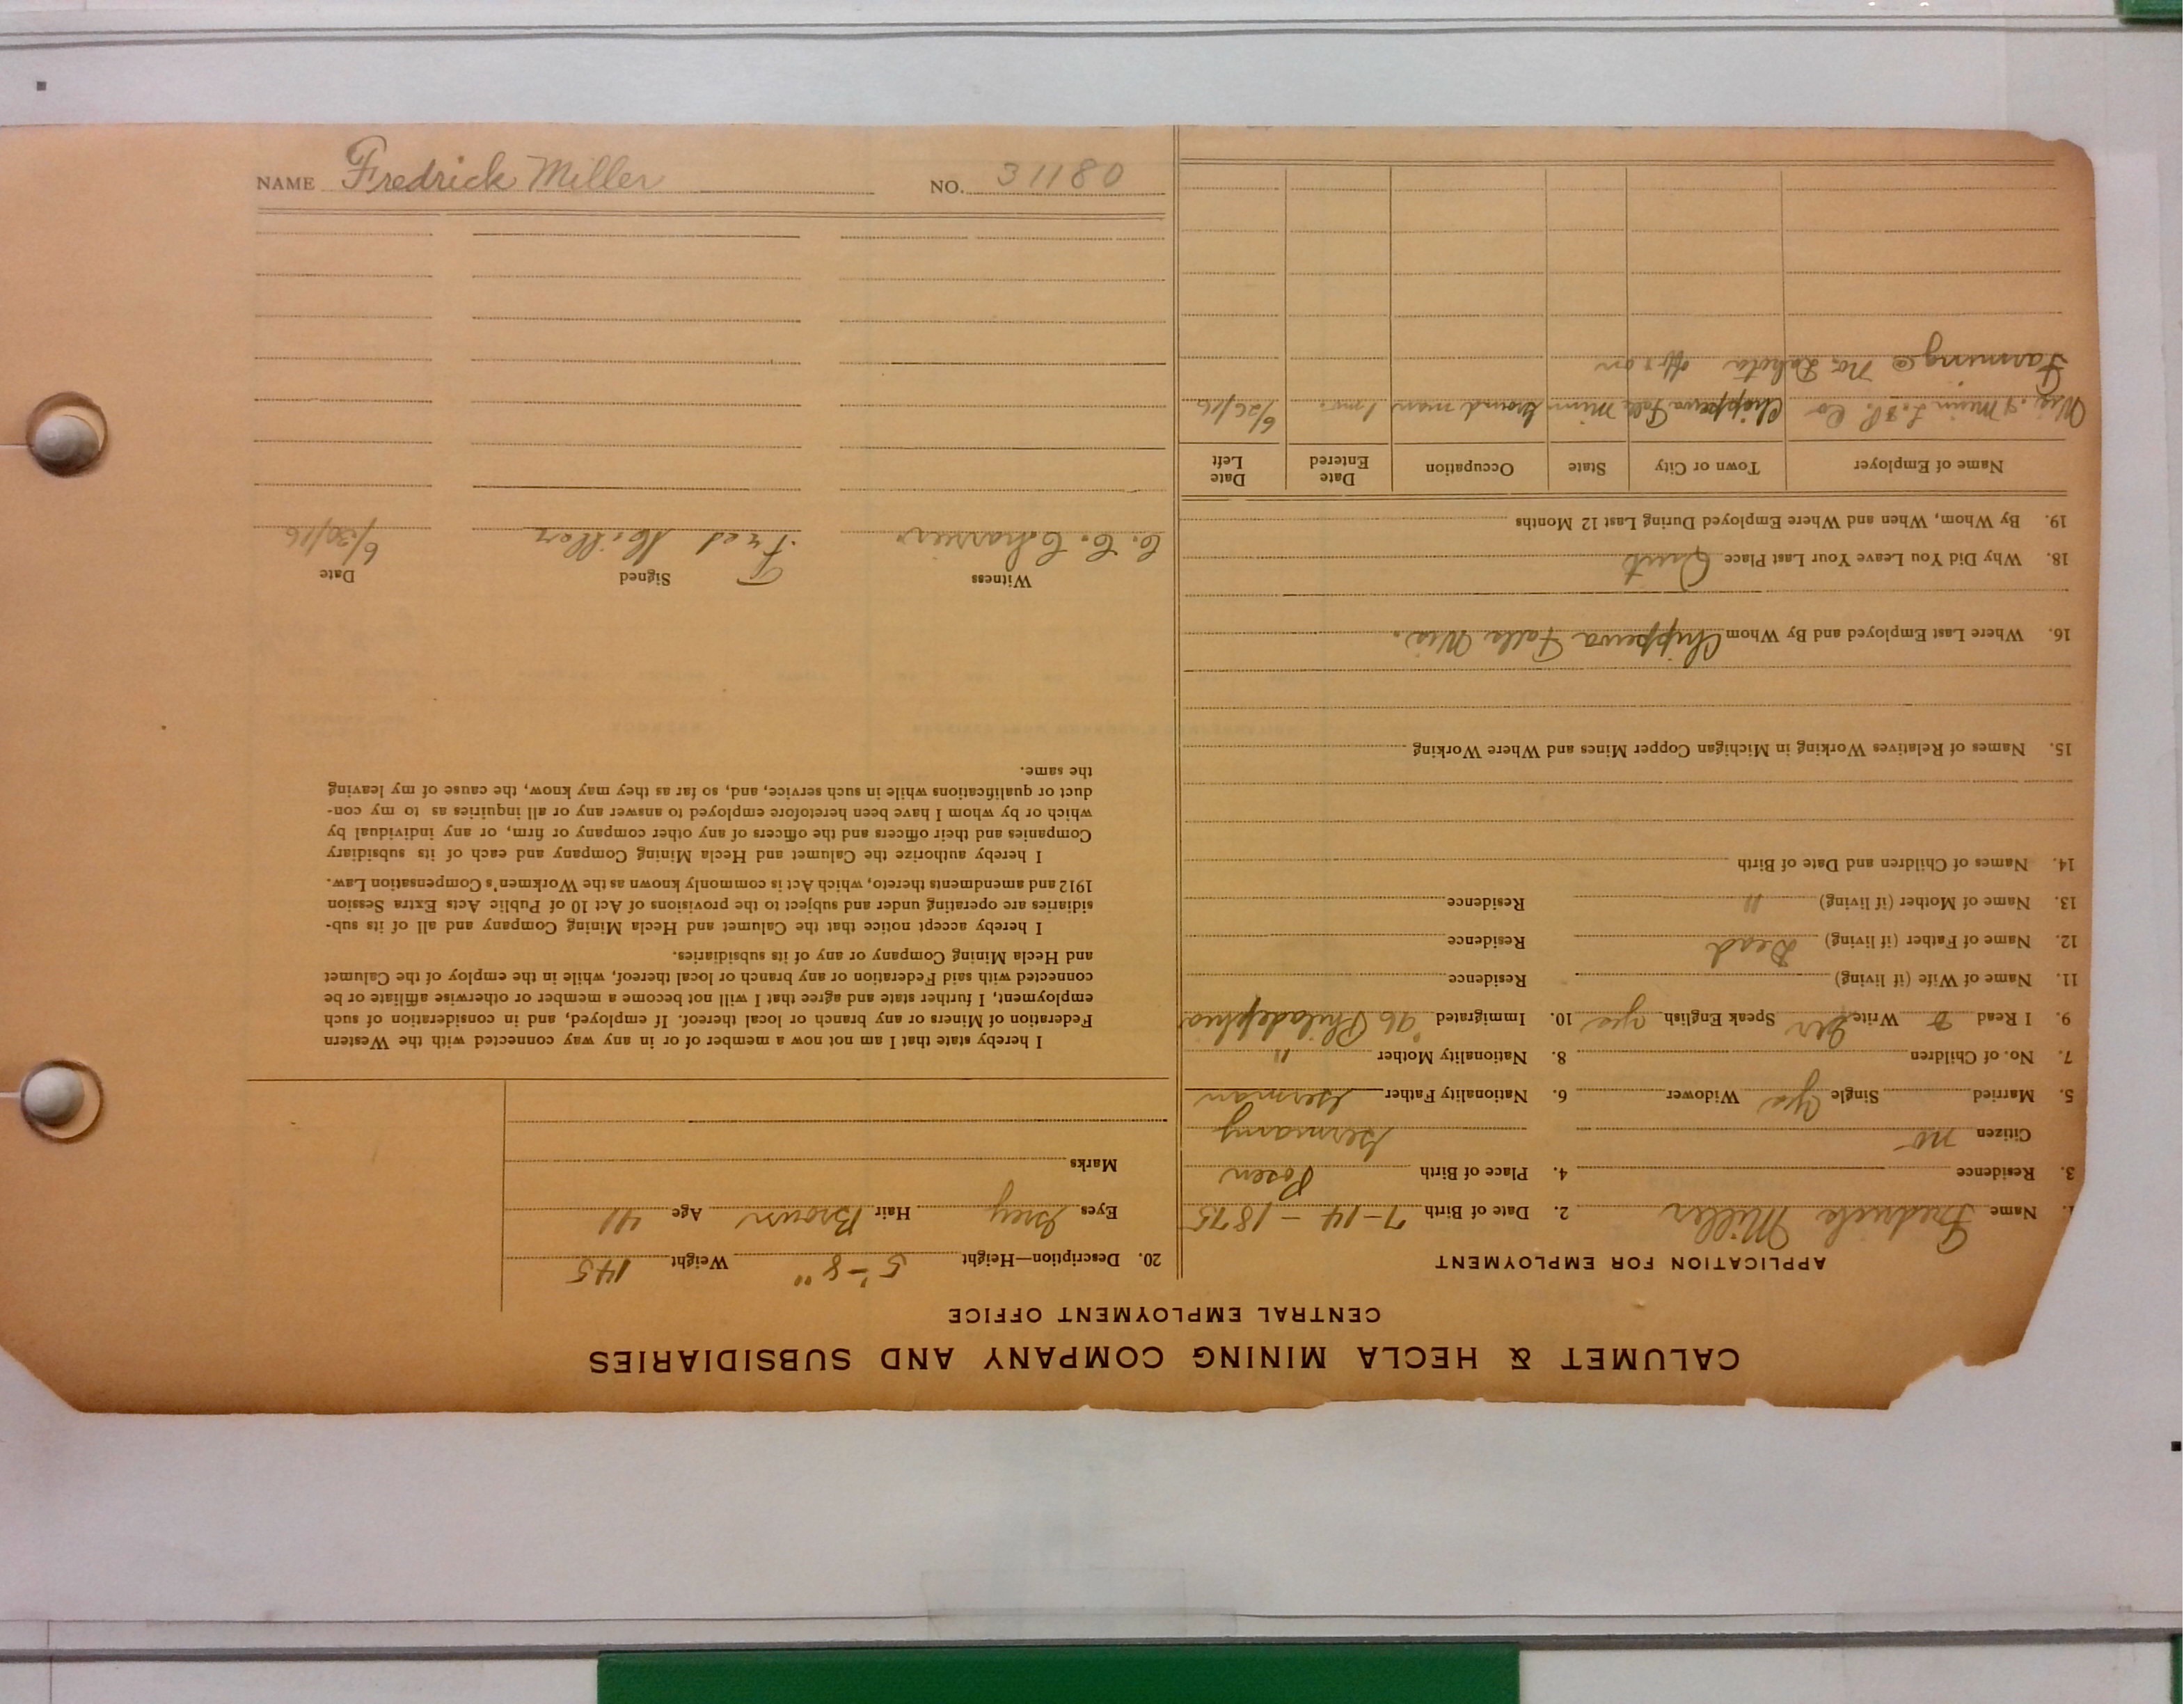 NAME Fredrick Miller NO. 31180
CALUMET & HECLA MINING COMPANY AND SUBSIDIARIES
CENTRAL EMPLOYMENT OFFICE
APPLICATION FOR EMPLOYMENT
1. Name Fredrick Miller 2. Date of Birth 7-14-1875
3. Residence 4. Place of Birth Posen
Citizen no Germany
5. Married Single Yes Widower 6. Nationality Father German
7. No. of Children 8. Nationality Mother "
9. I Read & Write Ger Speak English yes 10. Immigrated 96 Philadelphia
11. Name of Wife (if living) Residence
12. Name of Father (if living) Dead Residence
13. Name of Mother (if living) " Residence
14. Names of Children and Date of Birth
15. Names of Relatives Working in Michigan Copper Mines and Where Working
16. Where Last Employed and By Whom Chippewa Falls Wis.
18. Why Did You Leave Your Last Place Quit
19. By Whom, When and Where Employed During Last 12 Months
Name of Employer Town or City State Occupation Date Entered Date Left
Wis. & Minn L. & P. Co Chippewa Falls Minn Ground man 1 mo. 6/26/16
Farming @ No. Dakota
20. Description—Height 5'-8" Weight 145
Eyes Grey Hair Brown Age 41
Marks
I hereby state that I am not now a member of or in any way connected with the Western
Federation of Miners or any branch or local thereof. If employed, and in consideration of such
employment, I further state and agree that I will not become a member or otherwise affiliate or be
connected with said Federation or any branch or local thereof, while in the employ of the Calumet
and Hecla Mining Company or any of its subsidiaries.
I hereby accept notice that the Calumet and Hecla Mining Company and all of its sub-
sidiaries are operating under and subject to the provisions of Act 10 of Public Acts Extra Session
1912 and amendments thereto, which Act is commonly known as the Workmen's Compensation Law.
I hereby authorize the Calumet and Hecla Mining Company and each of its subsidiary
Companies and their officers and the officers of any other company or firm, or any individual by
which or by whom I have been heretofore employed to answer any or all inquiries as to my con-
duct or qualifications while in such service, and, so far as they may know, the cause of my leaving
the same.
Witness Signed Date
C. C. Fred Miller 6/30/16